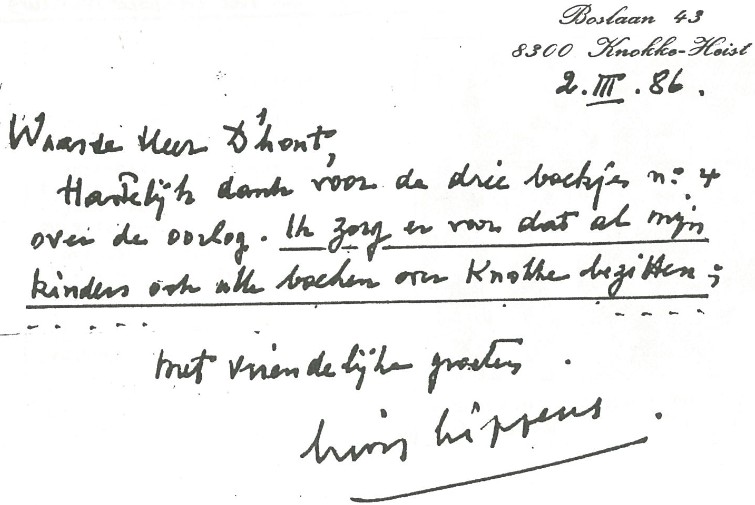 Boslaan 43
8300 Knokke-Heist
2.III.86.
Waarde Heer D'hont,
Hartelijk dank voor de drie boekjes n: 4
over de oorlog. Ik zorg er voor dat al mijn
kinders ook alle boeken over Knokke bezitten;
Met vriendelijke groeten.
Lippens.